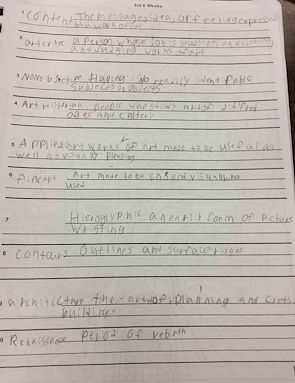 3rd 6 Weeks
1 Content The message, idea, or feeling expressed
by a work of art
2 art critic a person whose job is studying, 
and judging works of art
3 Nonobjective Having no readily identifiable
subjects or objects
4 Art Historian people who study art of different
ages and
5 Applied art works of art made to be useful as
well as visually pleasing
6 fine art Art made to be visually
used
7 Hieroglyphic an early form of picture
writing
8 contours Outlines and surface ridges
9 the art of planning and
buildings
Renaissance Period of rebirth